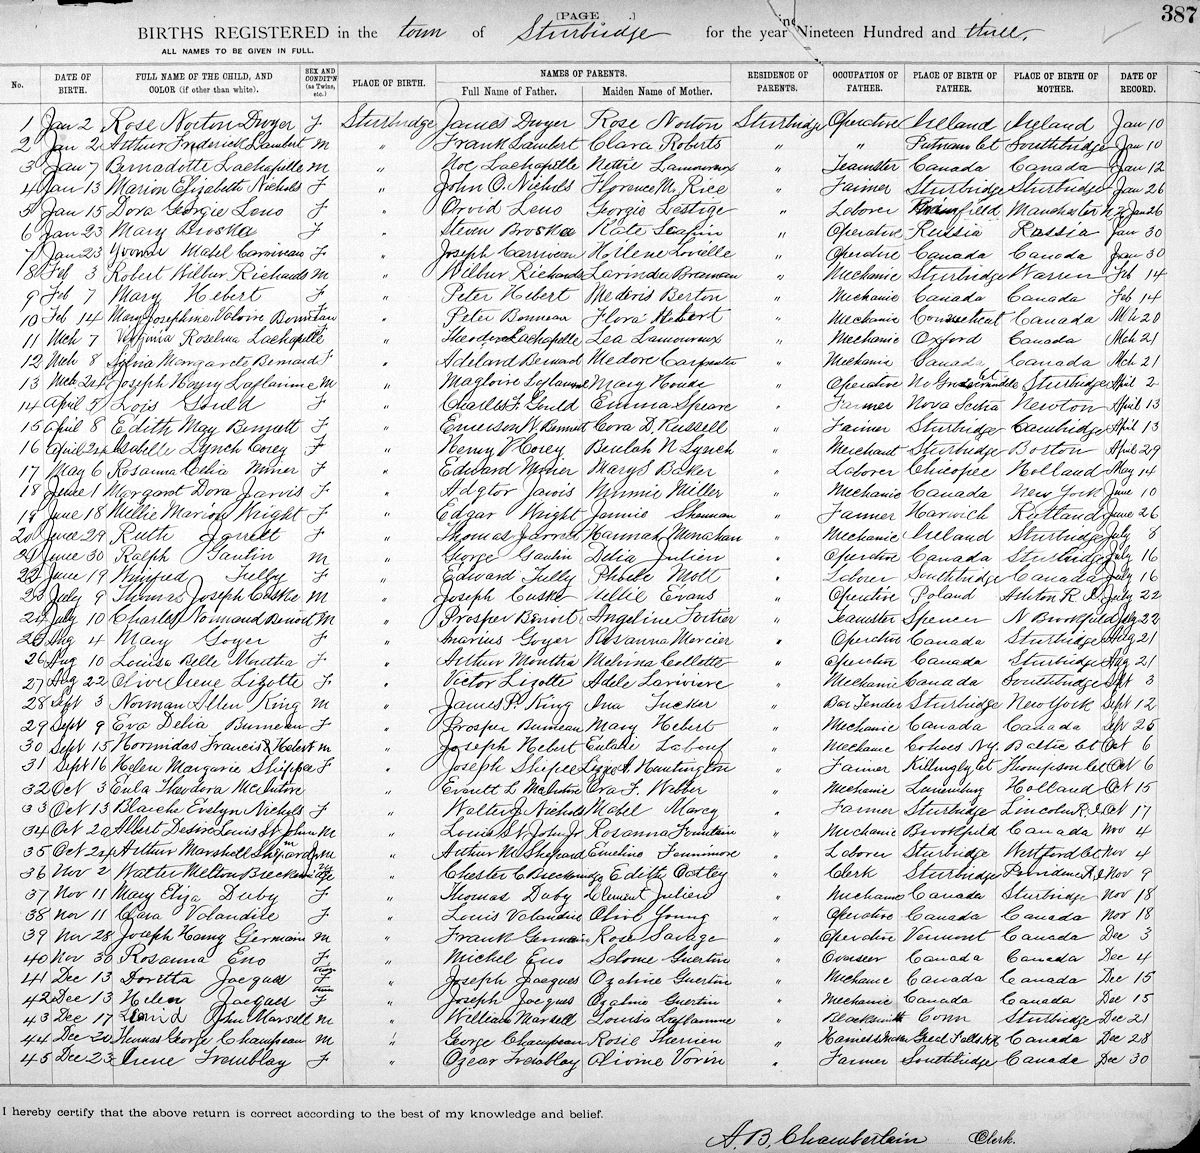 [PAGE .] 387
BIRTHS REGISTERED in the town of Sturbridge for the year Nineteen Hundred and three.
ALL NAMES TO BE GIVEN IN FULL.
No. DATE OF BIRTH. FULL NAME OF THE CHILD, AND COLOR (if other than white). SEX AND CONDIT'N (as Twins, etc.) PLACE OF BIRTH. NAMES OF PARENTS. Full Name of Father. Maiden Name of Mother. RESIDENCE OF PARENTS. OCCUPATION OF FATHER. PLACE OF BIRTH OF FATHER. PLACE OF BIRTH OF MOTHER. DATE OF RECORD.
1 Jan 2 Rose Norton Dwyer F Sturbridge James Dwyer Rose Norton Sturbridge Operative Ireland Ireland Jan 10
2 Jan 2 Arthur Frederick Lambert M " Frank Lambert Clara Roberts " " Putnam Ct Southbridge Jan 10
3 Jan 7 Bernadotte Lachapille M " Noe Lachapille Nettie Lamoureux " Teamster Canada Canada Jan 12
4 Jan 13 Marion Elizabeth Nichols F " John O. Nichols Florence M. Rice " Farmer Sturbridge Sturbridge Jan 26
5 Jan 15 Dora Georgie Leno F " Orvid Leno Georgie Lestige " Laborer Manchester N H Jan 26
6 Jan 23 Mary Broska F " Steven Broska Kate " Operative Russia Russia Jan 30
7 Jan 23 Yvonne Mabel Carriveau F " Joseph Carriveau Lovelle " Operative Canada Canada Jan 30
8 Feb 3 Robert Wilbur Richards M " Wilbur Richards Lavinda Braman " Mechanic Sturbridge Warren Feb 14
9 Feb 7 Mary Hebert F " Peter Hebert Mederis Berton " Mechanic Canada Canada Feb 14
10 Feb 14 Mary Josephine Valorie " Peter Bonneau Flora Hebert " Mechanic Connecticut Canada Mch 20
11 Mch 7 Virginia Roselma Lachapelle " Theodore Lachapelle Lea Lamoureux " Mechanic Oxford Canada Mch 21
12 Mch 8 Sylvia Margarete Bernard F " Adelard Bernard Medore Carpenter " Mechanic Canada Canada Mch 21
13 Mch 24 Joseph Harry Laflamme M " Magloire Laflamme Mary Houde " Operative Sturbridge April 2
14 April 5 Lois Gould F " Charles F. Gould Emma Speare " Farmer Nova Scotia Newton April 13
15 April 8 Edith May Bennett F " Emerson N. Bennett Cora D. Russell " Farmer Sturbridge Cambridge April 13
16 April 24 Isabelle Lynch Corey F " Henry V Corey Beulah N Lynch " Merchant Sturbridge Boston April 29
17 May 6 Rosanna Celia Miner F " Edward Miner Mary S Baker " Laborer Chicopee Holland May 14
18 June 1 Margaret Dora Jarvis F " Adgtor Jarvis Minnie Miller " Mechanic Canada New York June 10
19 June 18 Millie Marion Wright F " Edgar Wright Jennie Shannan " Farmer Harwich Rutland June 26
20 June 29 Ruth Jarrett F " Thomas Jarrett Hannah Monahan " Mechanic Ireland Sturbridge July 8
21 June 30 Ralph Gautin M " George Gautin Delia Julien " Operative Canada Sturbridge July 16
22 June 19 Winifred Tully F " Edward Tully Phoebe Mott " Laborer Southbridge Canada July 16
23 July 9 Thomas Joseph Cuske M " Joseph Cuske Nellie Evans " Operative Poland Ashton R I July 22
24 July 10 Charles Normand Benoit M " Prosper Benoit Angeline Fortier " Teamster Spencer N Brookfield July 22
25 Aug 4 Mary Goyer F " Anarius Goyer Rosanna Mercier " Operative Canada Sturbridge Aug 21
26 Aug 10 Louisa Belle Montha F " Arthur Montha Melvina Collette " Operative Canada Sturbridge Aug 21
27 Aug 22 Olive Irene Lizotte F " Victor Lizotte Adele Lariviere " Mechanic Canada Southbridge Sept 3
28 Sept 3 Norman Allen King M " James P. King Ina Tucker " Bar Tender Sturbridge New York Sept 12
29 Sept 9 Eva Delia Buneau F " Prosper Buneau Mary Hebert " Mechanic Canada Canada Sept 25
30 Sept 15 Hormidas Francis X Hebert M " Joseph Hebert Eulalie Labouf " Mechanic Cohoes N.Y. Baltic Ct Oct 6
31 Sept 16 Helen Margarie Shippee F " Joseph Shippee Lizzie A. Huntington " Farmer Killingly Ct Thompson Ct Oct 6
32 Oct 3 Eula Theodora McIntire " Everett L. McIntire Ora F. Webber " Mechanic Lunenburg Holland Oct 15
33 Oct 13 Blanche Evelyn Nichols F " Walter J Nichols Mabel Marcy " Farmer Sturbridge Lincoln R.I. Oct 17
34 Oct 20 Albert Desire Louis St John M " Louis St John Jr Rosanna Fountain " Mechanic Brookfield Canada Nov 4
35 Oct 24 Arthur Marshall Shepard Jr M " Arthur M. Shepard Emeline Fennimore " Laborer Sturbridge Westford Ct Nov 4
36 Nov 2 Walter Melton " Chester C Edith Ostley " Clerk Sturbridge Providence R.I. Nov 9
37 Nov 11 Mary Eliza Duby F " Thomas Duby Clement Julien " Mechanic Canada Sturbridge Nov 18
38 Nov 11 Clara Valandire F " Louis Valandire Olive Young " Operative Canada Canada Nov 18
39 Nov 28 Joseph Henry Germain M " Frank Germain Rose Savage " Operative Vermont Canada Dec 3
40 Nov 30 Rosanna Eno F " Michel Eno Salome Guertin " Overseer Canada Canada Dec 4
41 Dec 13 Doretta Jacques twin F " Joseph Jacques Ozaline Guertin " Mechanic Canada Canada Dec 15
42 Dec 13 Helen Jacques twin F " Joseph Jacques Ozaline Guertin " Mechanic Canada Canada Dec 15
43 Dec 17 David John Marsell M " William Marsell Louisa Laflamme " Blacksmith Conn Sturbridge Dec 21
44 Dec 20 Thomas George Champeau M " George Champeau Rosie Therrien " Harness Maker Great Falls N H Canada Dec 28
45 Dec 23 Irene Tremblay F " Ozear Tremblay Vorin " Farmer Southbridge Canada Dec 30
I hereby certify that the above return is correct according to the best of my knowledge and belief.
A. B. Chamberlain Clerk.